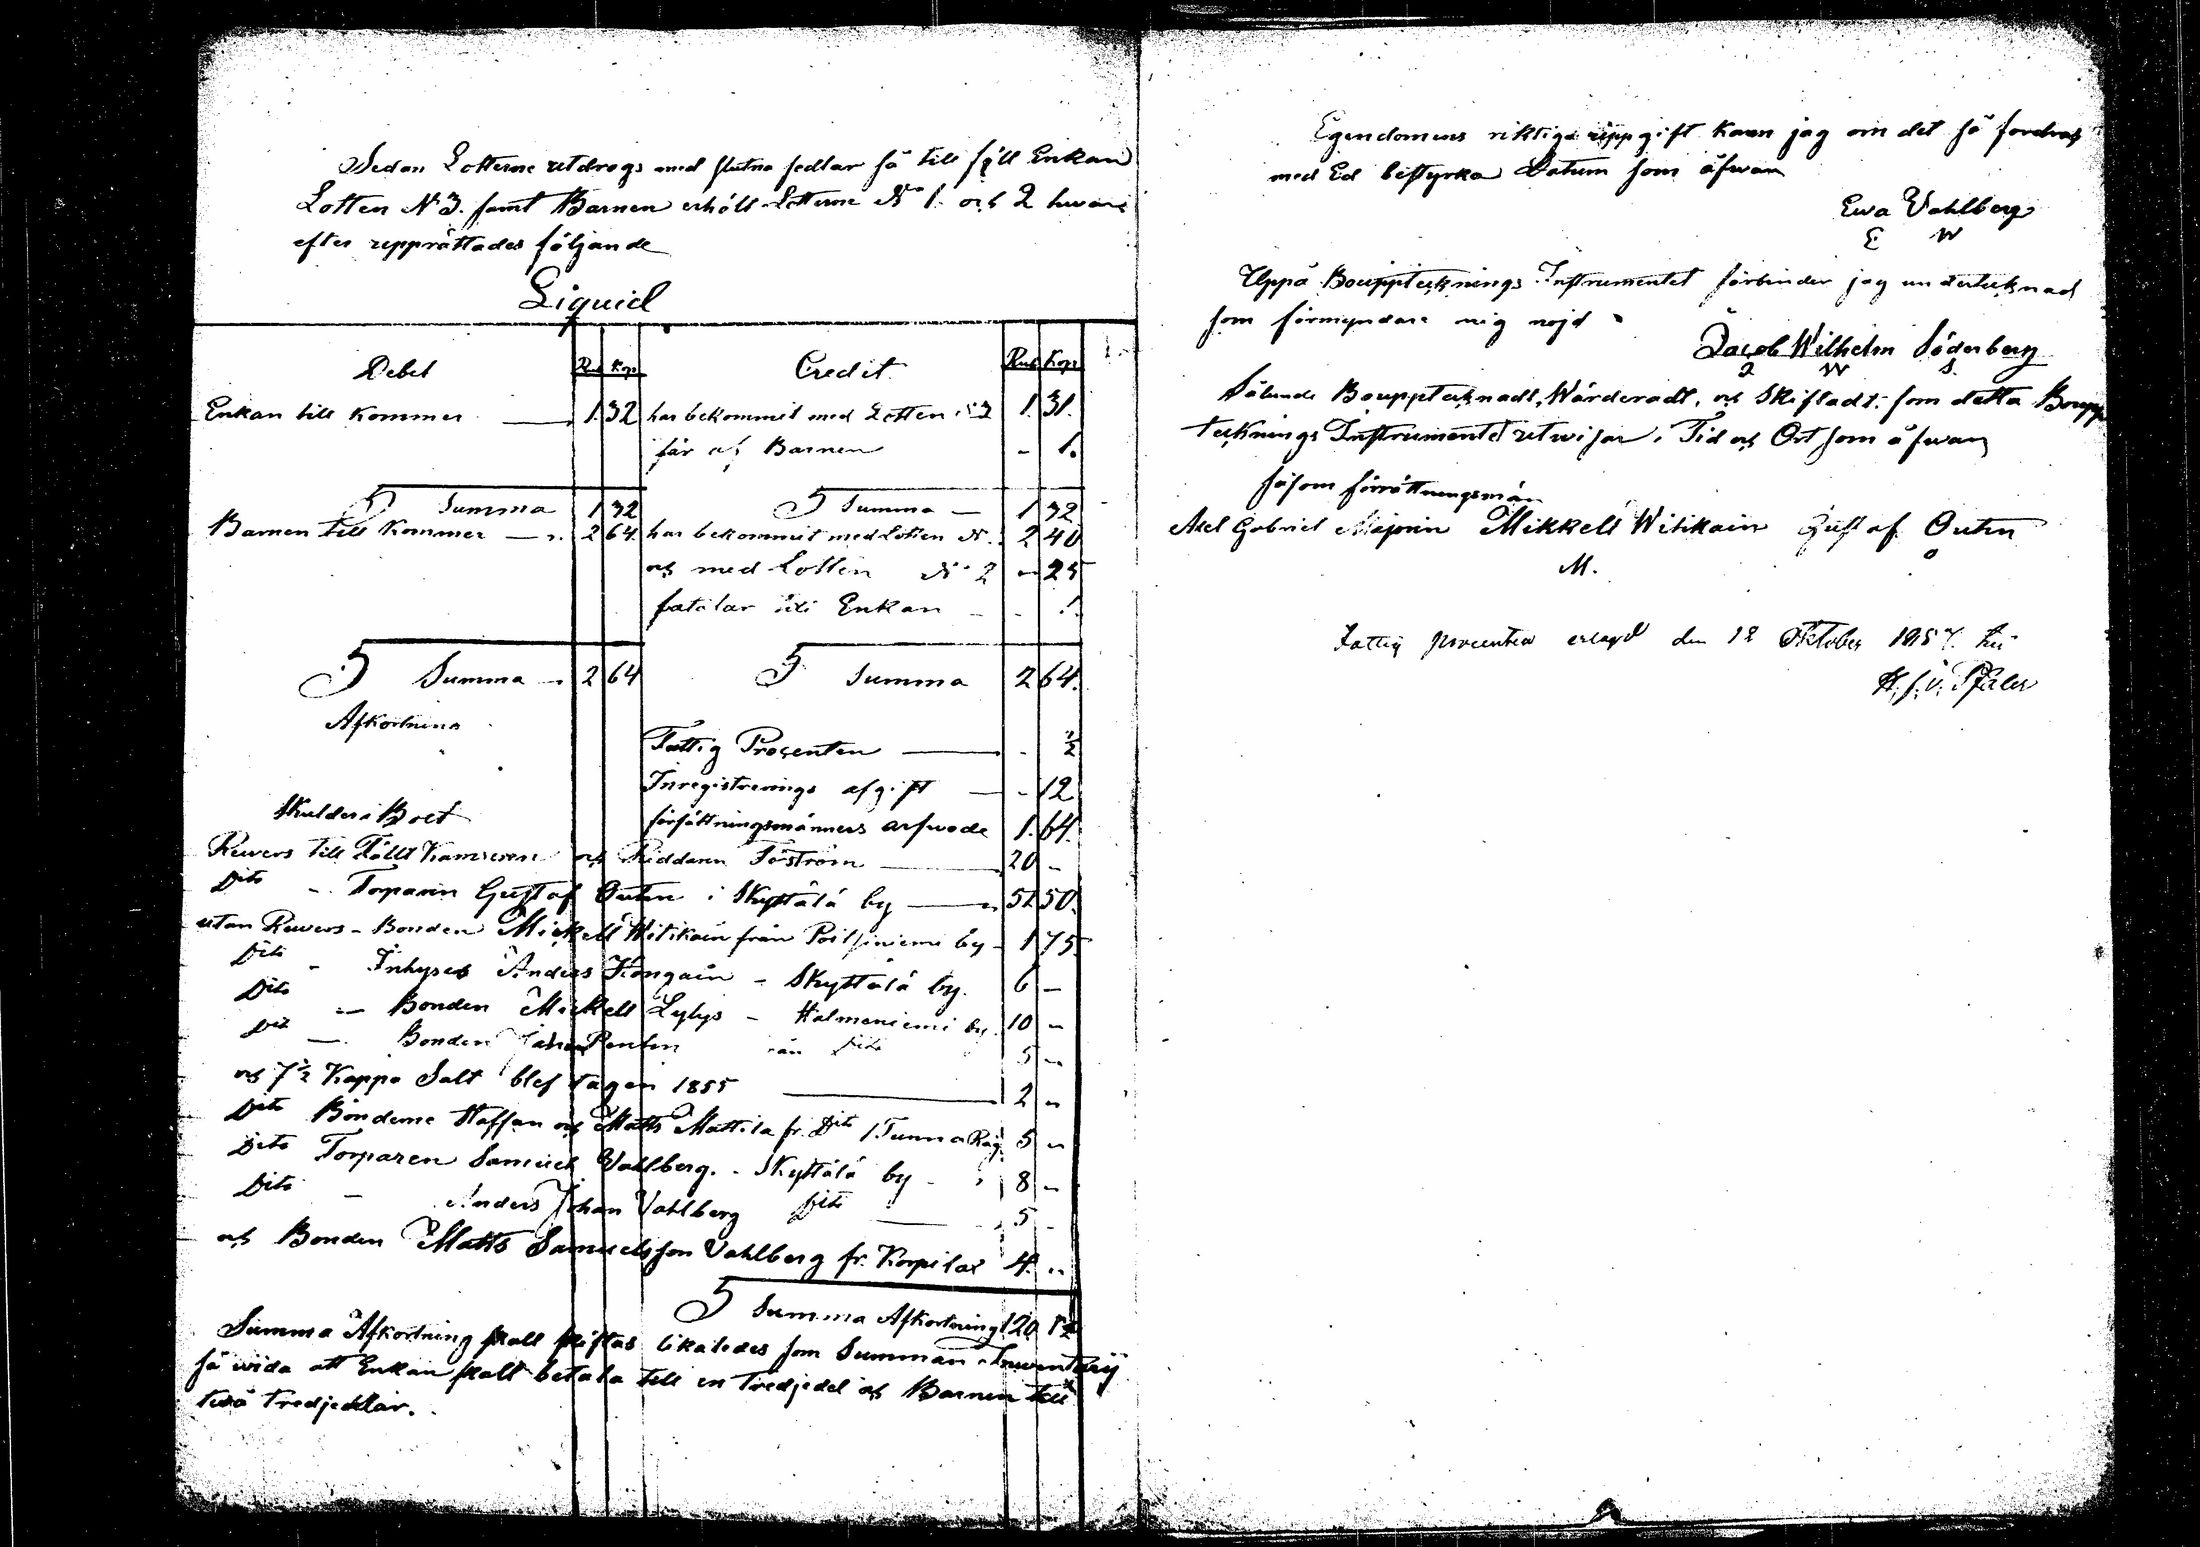 Sedan Lotterne utdrogs med slutna sedlar så till föll Enkan
Lotten N 3. samt Barnen erhöll Lotterne N° 1. och 2 hwar
efter upprättades följande
Liquid
Debet Rub Kop Credit Rub Kop
Enkan till kommer 1 32 har bekommit med Lotten N 3 1. 31.
får af Barnen - 1.
Summa 1 32 Summa 1 32
Barnen till kommer 2 64 har bekommit med Lotten N. 2 40
och med Lotten N° 2 - 25
betalar till Enkan - - 1.
Summa 2 64 Summa 2 64.
Afkortning
Fattig Procenten - ½
Inregistrerings afgift - 12
Skulder i Boet förrättningsmänners arfwode 1. 64.
Revers till Fällt Kamreren och Riddaren Törström 20 -
Dito - Torparen Gustaf Outen i Skyttälä by 51 50.
utan Revers - Bonden Mickell Witikain från Poitsiniemi by - 1 75
Dito - Inhyses Anders Kongain - Skyttälä by. 6 -
Dito - Bonden Mickell Lylys - Halmeniemi by. 10 -
Dito - Bonden Johan Penten från Dito 5 -
och 7½ Kappa Salt blef tagen 1855 2 -
Dito Bönderne Staffan och Matts Mattila fr. Dito 1. Tunna Råg 5 -
Dito Torparen Samuel Vahlberg. - Skyttälä by - 8 -
Dito - Anders Johan Vahlberg Dito 5 -
och Bonden Matts Samuelsson Vahlberg fr. Korpilax 4. -
Summa Afkortning 120
Summa Afkortning skall skiftas likaledes som Summan Inwentarij
så wida att Enkan skall betala till en Tredjedel och Barnen till
twå Tredjedelar.
Egendomens riktiga uppgift kann jag om det så fordras
med Ed bestyrka Datum som åfwan
Ewa Vahlberg
E W
Uppå Bouppteknings Instrumentet förbinder jag undertecknad
som förmyndare mig nöjd
Jacob Wilhelm Söderberg
J W S
Sålunda Bouppteknadt, Wärderadt, och Skiftadt. som detta Boupp
tecknings Instrumentet utwisar, Tid och Ort som åfwan
såsom förrättningsmän
Axel Gabriel Majorin Mikkell Witikain Gustaf Outen
M. O
Fattig procenten erlagd den 12 Oktober 1857.